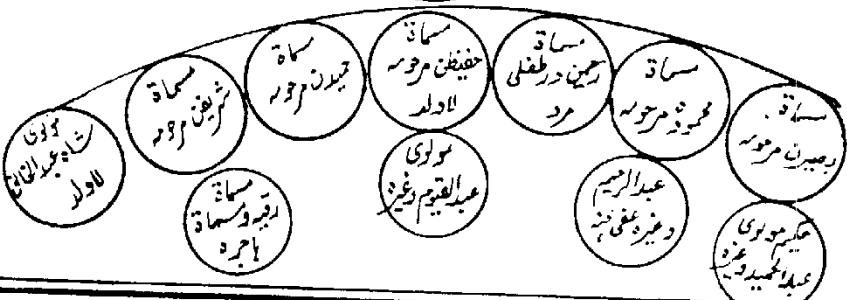 مسماة
وحیدن مرحومہ
مسماة
محمودن مرحومہ
مسماة
رحیمن در طفلی
مرد
مسماة
حفیظن مرحومہ
لاولد
مسماة
حمیدن مرحومہ
مسماة
شریفن مرحومہ
مولوی
شاہ عبدالخالق
لاولد
حکیم مولوی
عبدالحمید وغیرہ
عبدالرحیم
وغیرہ عفی عنہ
مولوی
عبدالقیوم وغیرہ
مسماة
رقیہ و مسماة
ہاجرہ